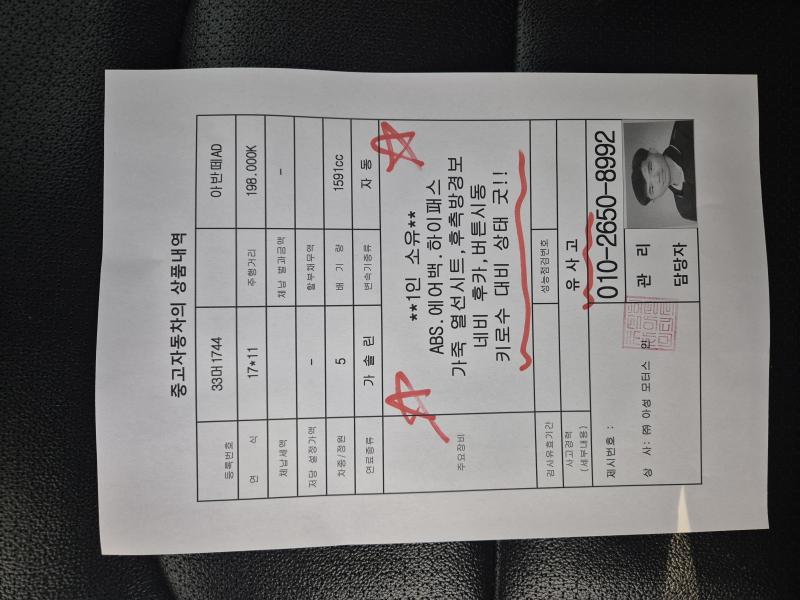 중고자동차의 상품내역
등록번호 33머1744 아반떼AD
연 식 17*11 주행거리 198.000K
체납세액 체납 벌과금액 -
저당 설정가액 - 할부채무액
차종/정원 5 배 기 량 1591cc
연료종류 가 솔 린 변속기종류 자 동
주요장비
**1인 소유**
ABS.에어백.하이패스
가죽 열선시트,후측방경보
네비 후카,버튼시동
키로수 대비 상태 굿!!
검사유효기간 성능점검번호
사고경력
(세부내용)
유 사 고
제시번호 :
010-2650-8992
상 사: ㈜ 아성 모터스 인
관 리
담당자